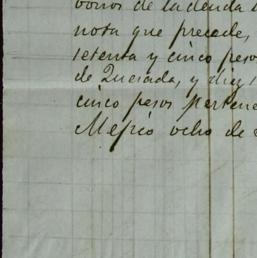 nota que precede,
setenta y cinco pesos
de Quesada, y diez
cinco pesos pertene
Mejico ocho de